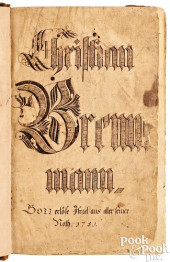 Christian
Brenne
mann,
Gott erlöse Israel aus aller seiner
Noth. 1781.
Pook
& Pook
Inc.